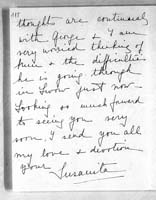 thoughts are continually
with George & I am
very worried thinking of
him & the difficulties
he is going through
in Lwow just now -
Looking so much forward
to seeing you very
soon I send you all
my love & devotion
your Susanita